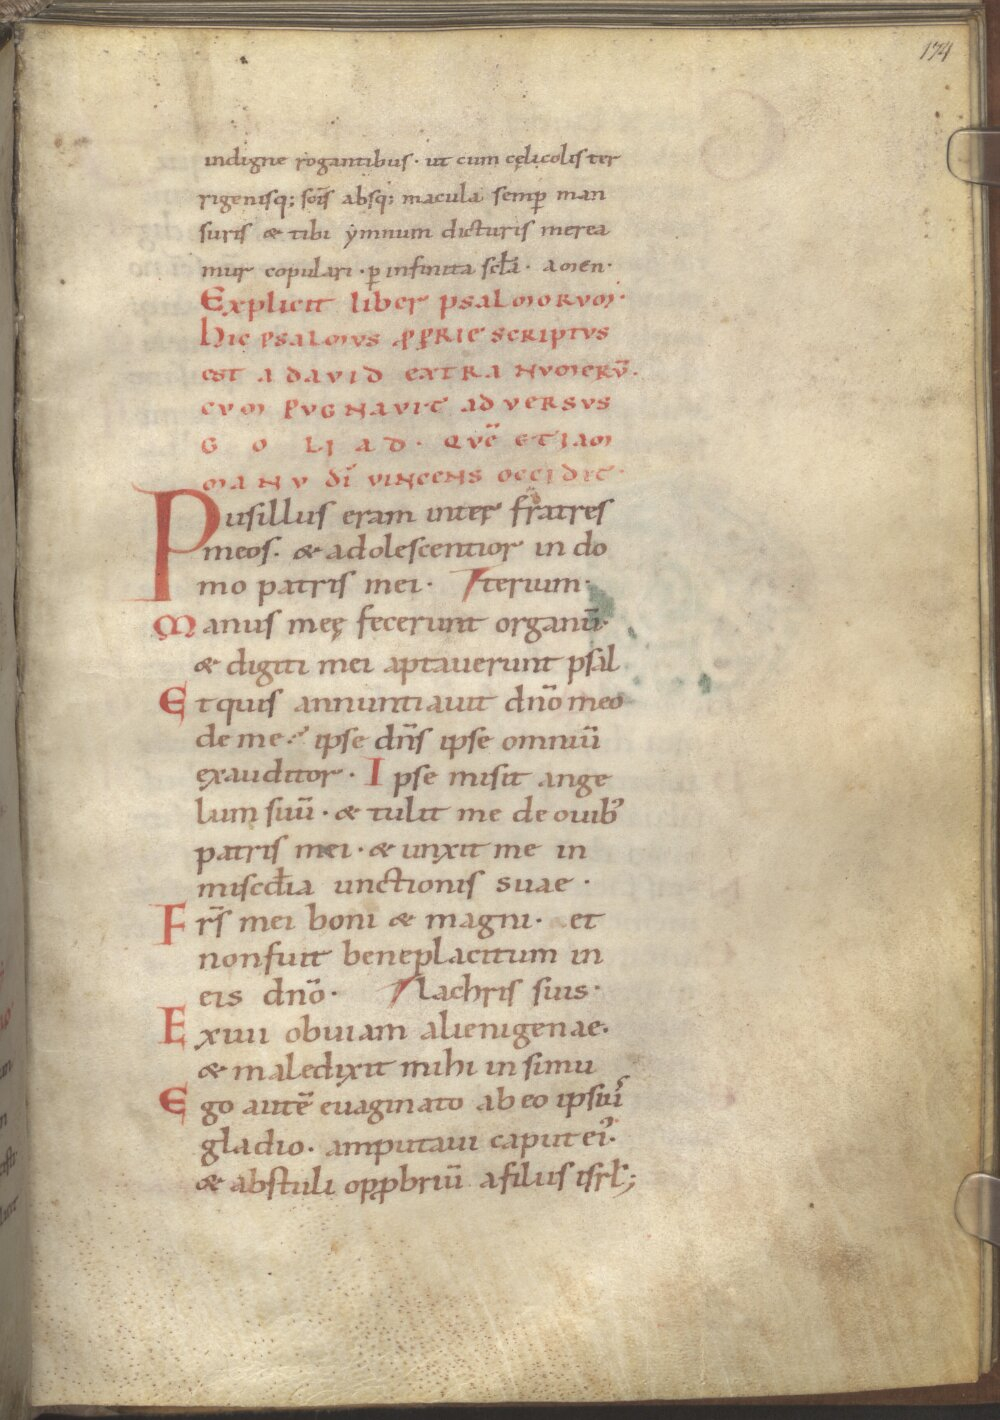 174
indigne rogantibus · ut cum cęlicolis ter
rigenisq; soīs absq; macula semp̲ man
suris & tibi ymnum dicturis merea
mur copulari · p̲ infinita scl̄a · amen ·
Explicit liber psalmorum ·
Hic psalmus p̲p̲rie scriptus
est a david extra numerū ·
cum pugnavit adversus
goliad · quē etiam
manu dī vincens occidit ·
Pusillus eram inter fratres
meos · & adolescentior in do
mo patris mei · terium ·
Manus meę fecerunt organū ·
& digiti mei aptaverunt psal
Et quis annuntiavit dn̄o meo
de me · ipse dn̄s ipse omniū
exauditor · Ipse misit ange
lum suū · & tulit me de ouib'
patris mei · & unxit me in
miscd̄ia unctionis suae ·
Fr̄s mei boni & magni · et
non fuit beneplacitum in
eis dn̄o · lachris suis ·
Exiui obuiam alienigenae ·
& maledixit mihi in simu
Ego autē euaginato ab eo ipsiu'
gladio · amputaui caput ei' ·
& abstuli opp̲briū a filiis isrl̄ ;